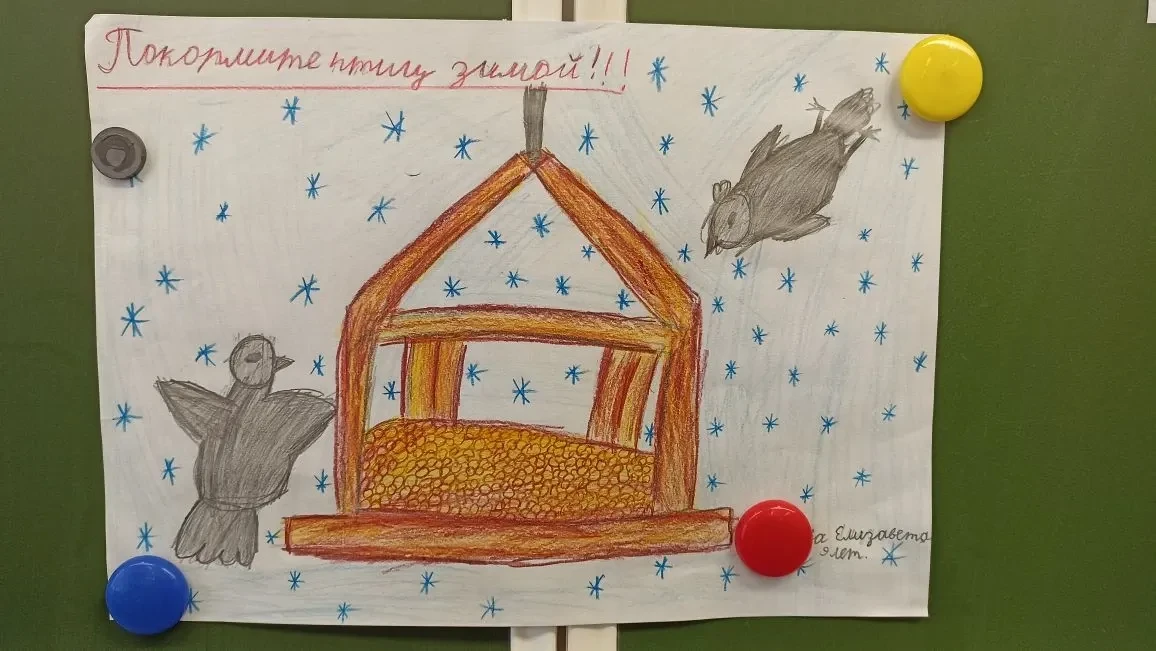 Покормите птиц зимой!!!
а Елизавета
9 лет.